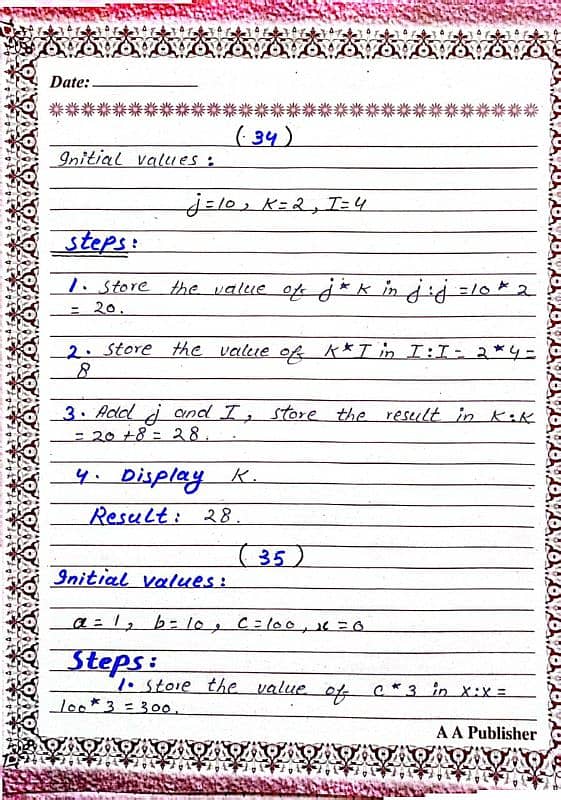 Date:
(34)
Initial values:
j=10, K=2, I=4
Steps:
1. Store the value of j*K in j:j =10*2
= 20.
2. Store the value of K*I in I:I= 2*4=
8
3. Add j and I, store the result in K:K
= 20 +8 = 28.
4. Display K.
Result: 28.
(35)
Initial values:
a = 1, b= 10, C=100, x = 0
Steps:
1. Store the value of C*3 in x:x =
100*3 = 300.
A A Publisher